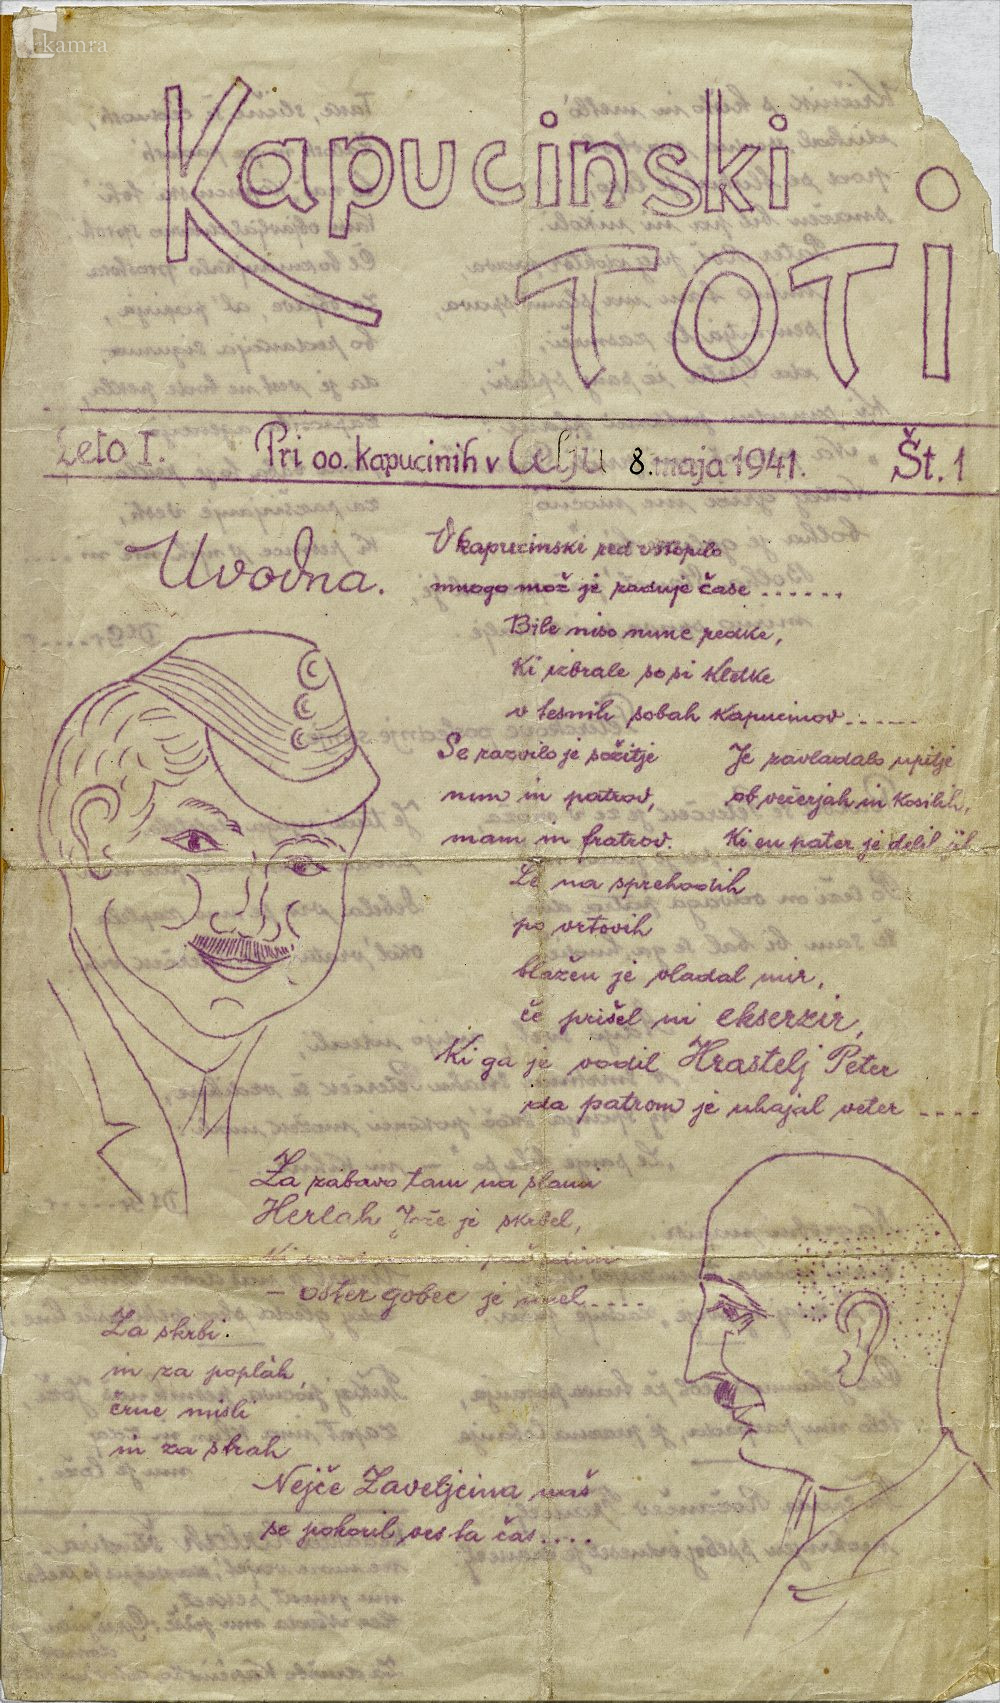 kamra
Kapucinski
TOTI
Leto I. Pri oo. kapucinih v Celju 8. maja 1941. Št. 1
Uvodna.
V kapucinski red vstopilo
mnogo mož je zadnje čase ......
Bile niso nune redke,
ki izbrale so si kletke
v tesnih sobah kapucinov ......
Se razvilo je sožitje
nun in patrov,
mam in fratrov.
Je zavladalo upitje
ob večerjah in kosilih,
ki en pater je delil
Le na sprehodih
po vrtovih
blažen je vladal mir,
če prišel ni ekserzir,
ki ga je vodil Hrastelj Peter
da patrom je uhajal veter ----
Za zabavo tam na slami
Herlah Jože je skrbel,
– oster gobec je imel....
Za skrbi
in za poplàh,
črne misli
in za strah
Nejče Zaveljcina naš
se pokoril ves ta čas....